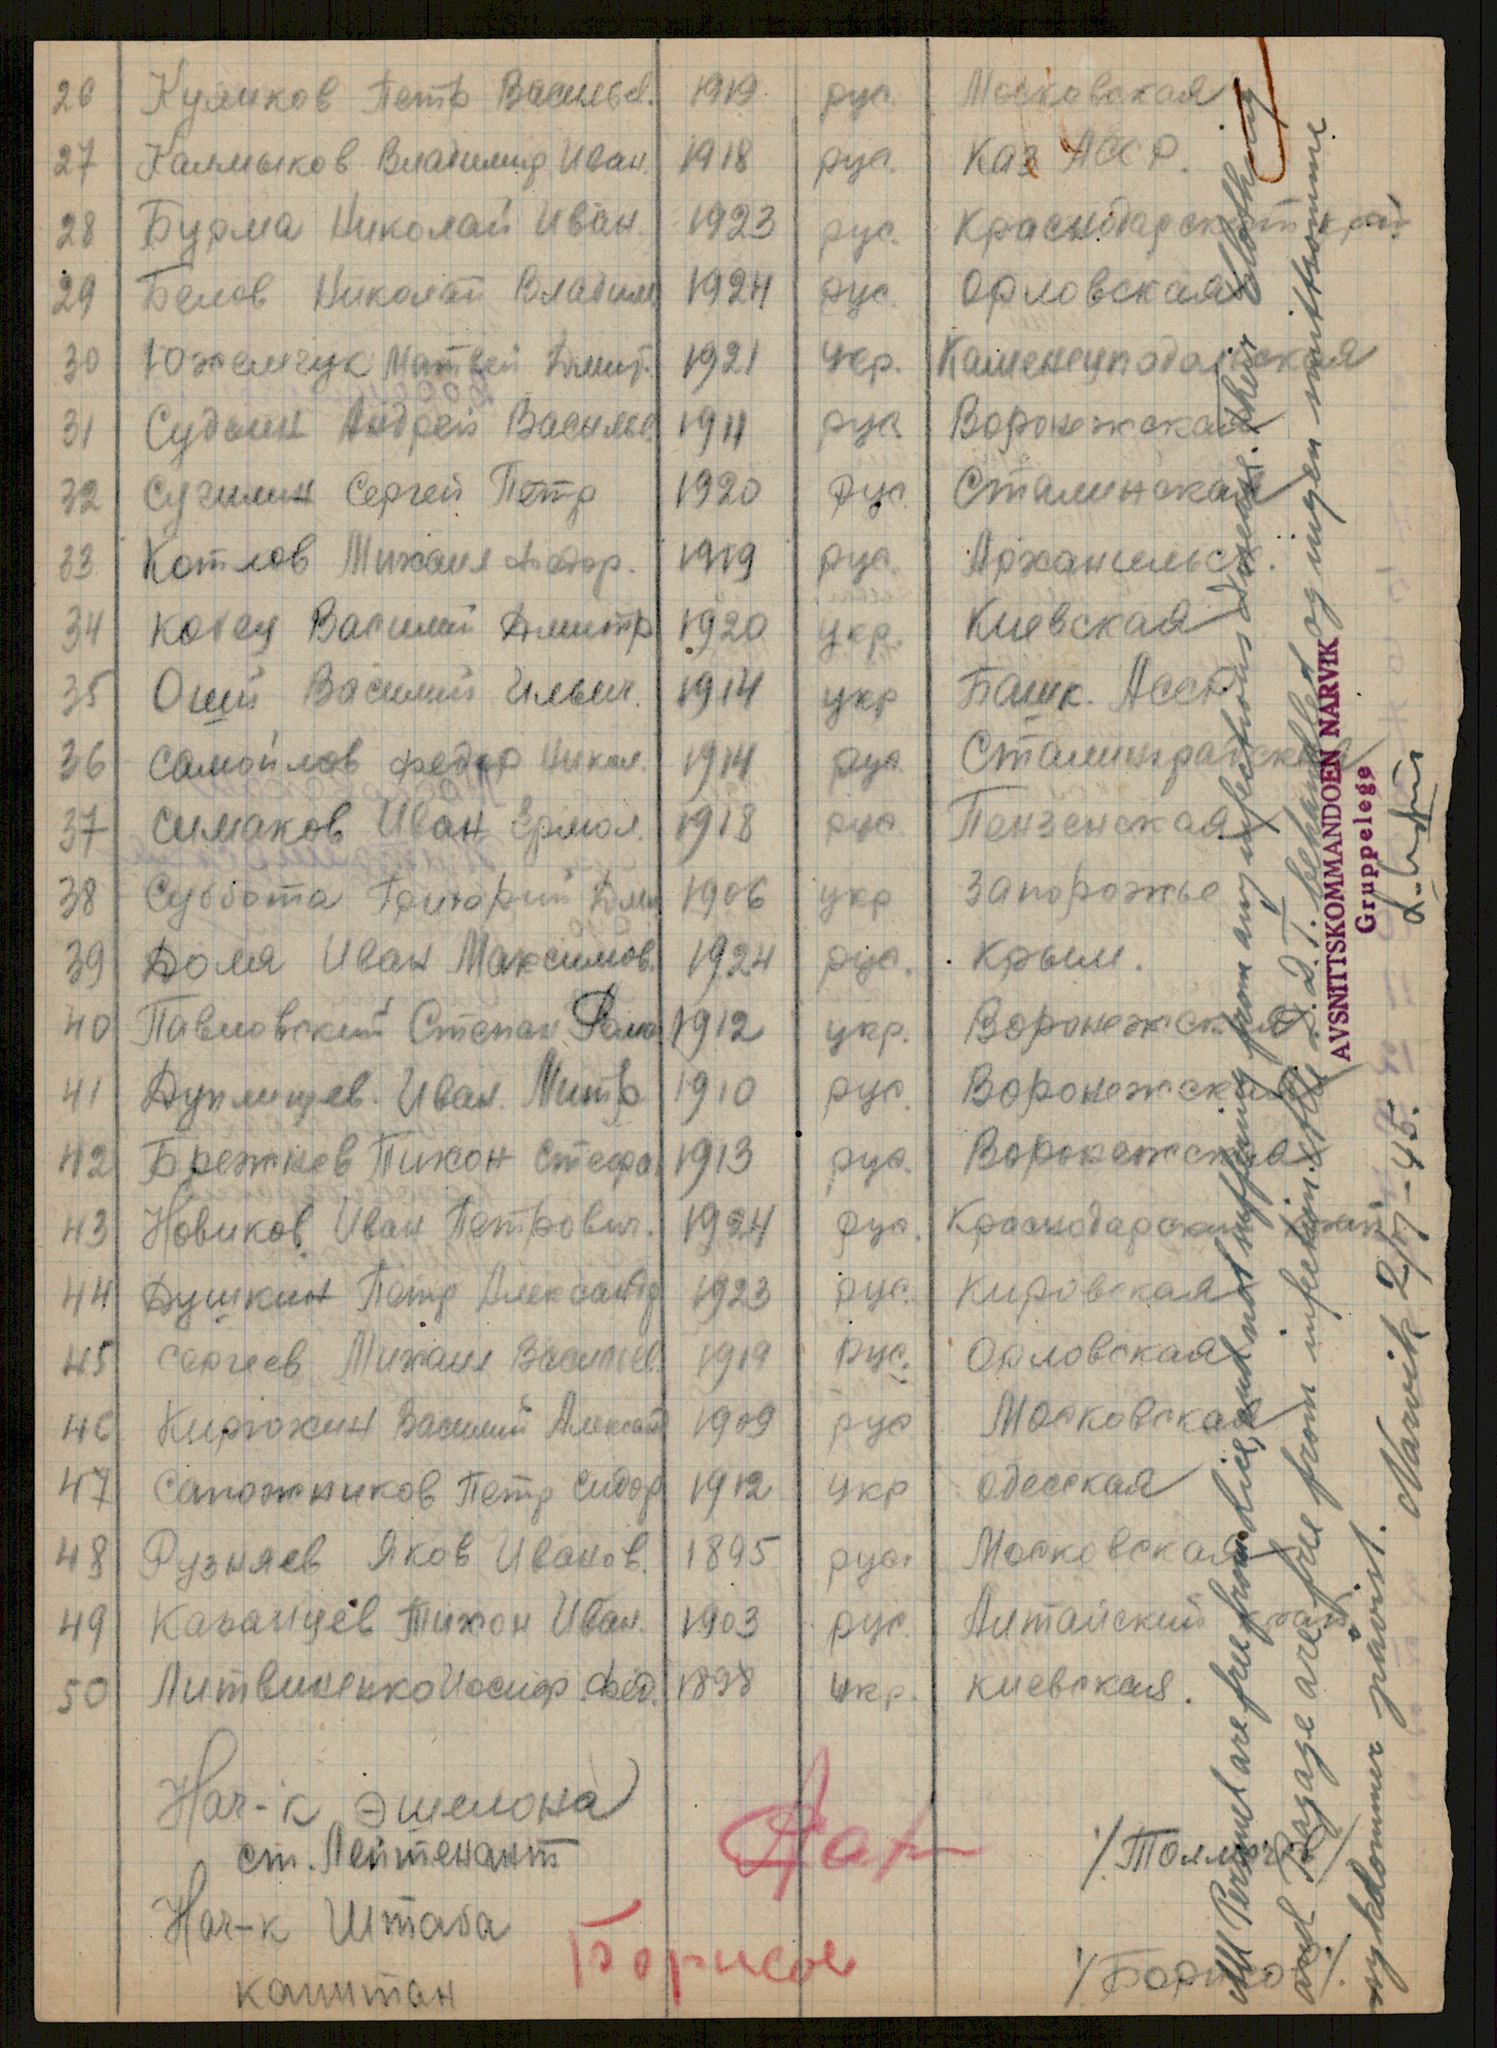 26 Куликов Петр Васильев. 1919 рус. Московская
27 Калмыков Владимир Иван. 1918 рус. Каз АССР.
28 Бурма Николай Иван. 1923 рус. Краснодарский край
29 Белов Николай Владим 1924 рус. Орловская
30 Матвей Дмит. 1921 Укр. Каменецподольская
31 Судьин Андрей Василье. 1911 рус. Воронежская
32 Сугилин Сергей Петр 1920 Рус. Сталинская
33 Котлов Михаил Федор. 1919 рус. Архангельск.
34 Василий Дмитр 1920 укр. Киевская
35 Оший Василий Ильич. 1914 укр Башк. АССР
36 Самойлов Федор Никол. 1914 рус. Сталинградская
37 Симаков Иван Ермол. 1918 рус Пензенская
38 Суббота Григорий Дми 1906 укр Запорожье
39 Доля Иван Максимов. 1924 рус. Крым.
40 Павловский Степан 1912 укр. Воронежская
41 Дуплищев. Иван. Митр 1910 рус. Воронежская
42 Брежнев Тихон Стефа 1913 рус. Воронежская
43 Новиков Иван Петрович. 1924 рус. Краснодарский край
44 Душкин Петр Александр 1923 рус. Кировская
45 Сергеев Михаил Васильев 1919 рус. Орловская
46 Кирюхин Василий Александ 1909 рус Московская
47 Сапожников Петр Сидор 1912 укр Одесская
48 Рузняев Яков Иванов. 1895 рус. Московская
49 Казанцев Тихон Иван. 1903 рус. Алтайский край
50 Литвиненко Иосиф Фед. 1898 Укр. Киевская.
Нач-к эшелона
ст. Лейтенант
Нач-к Штаба Борисов
капитан /Борисов/.
All Personel are free from lice, and not suffering from any infectious diseas. Their Clothing
and Bagage are free from infection. Alle D.D.T. behandlet og ingen smittsomme
sykdommer påvist. Narvik 2/7-45.
AVSNITTSKOMMANDOEN NARVIK
Gruppelege